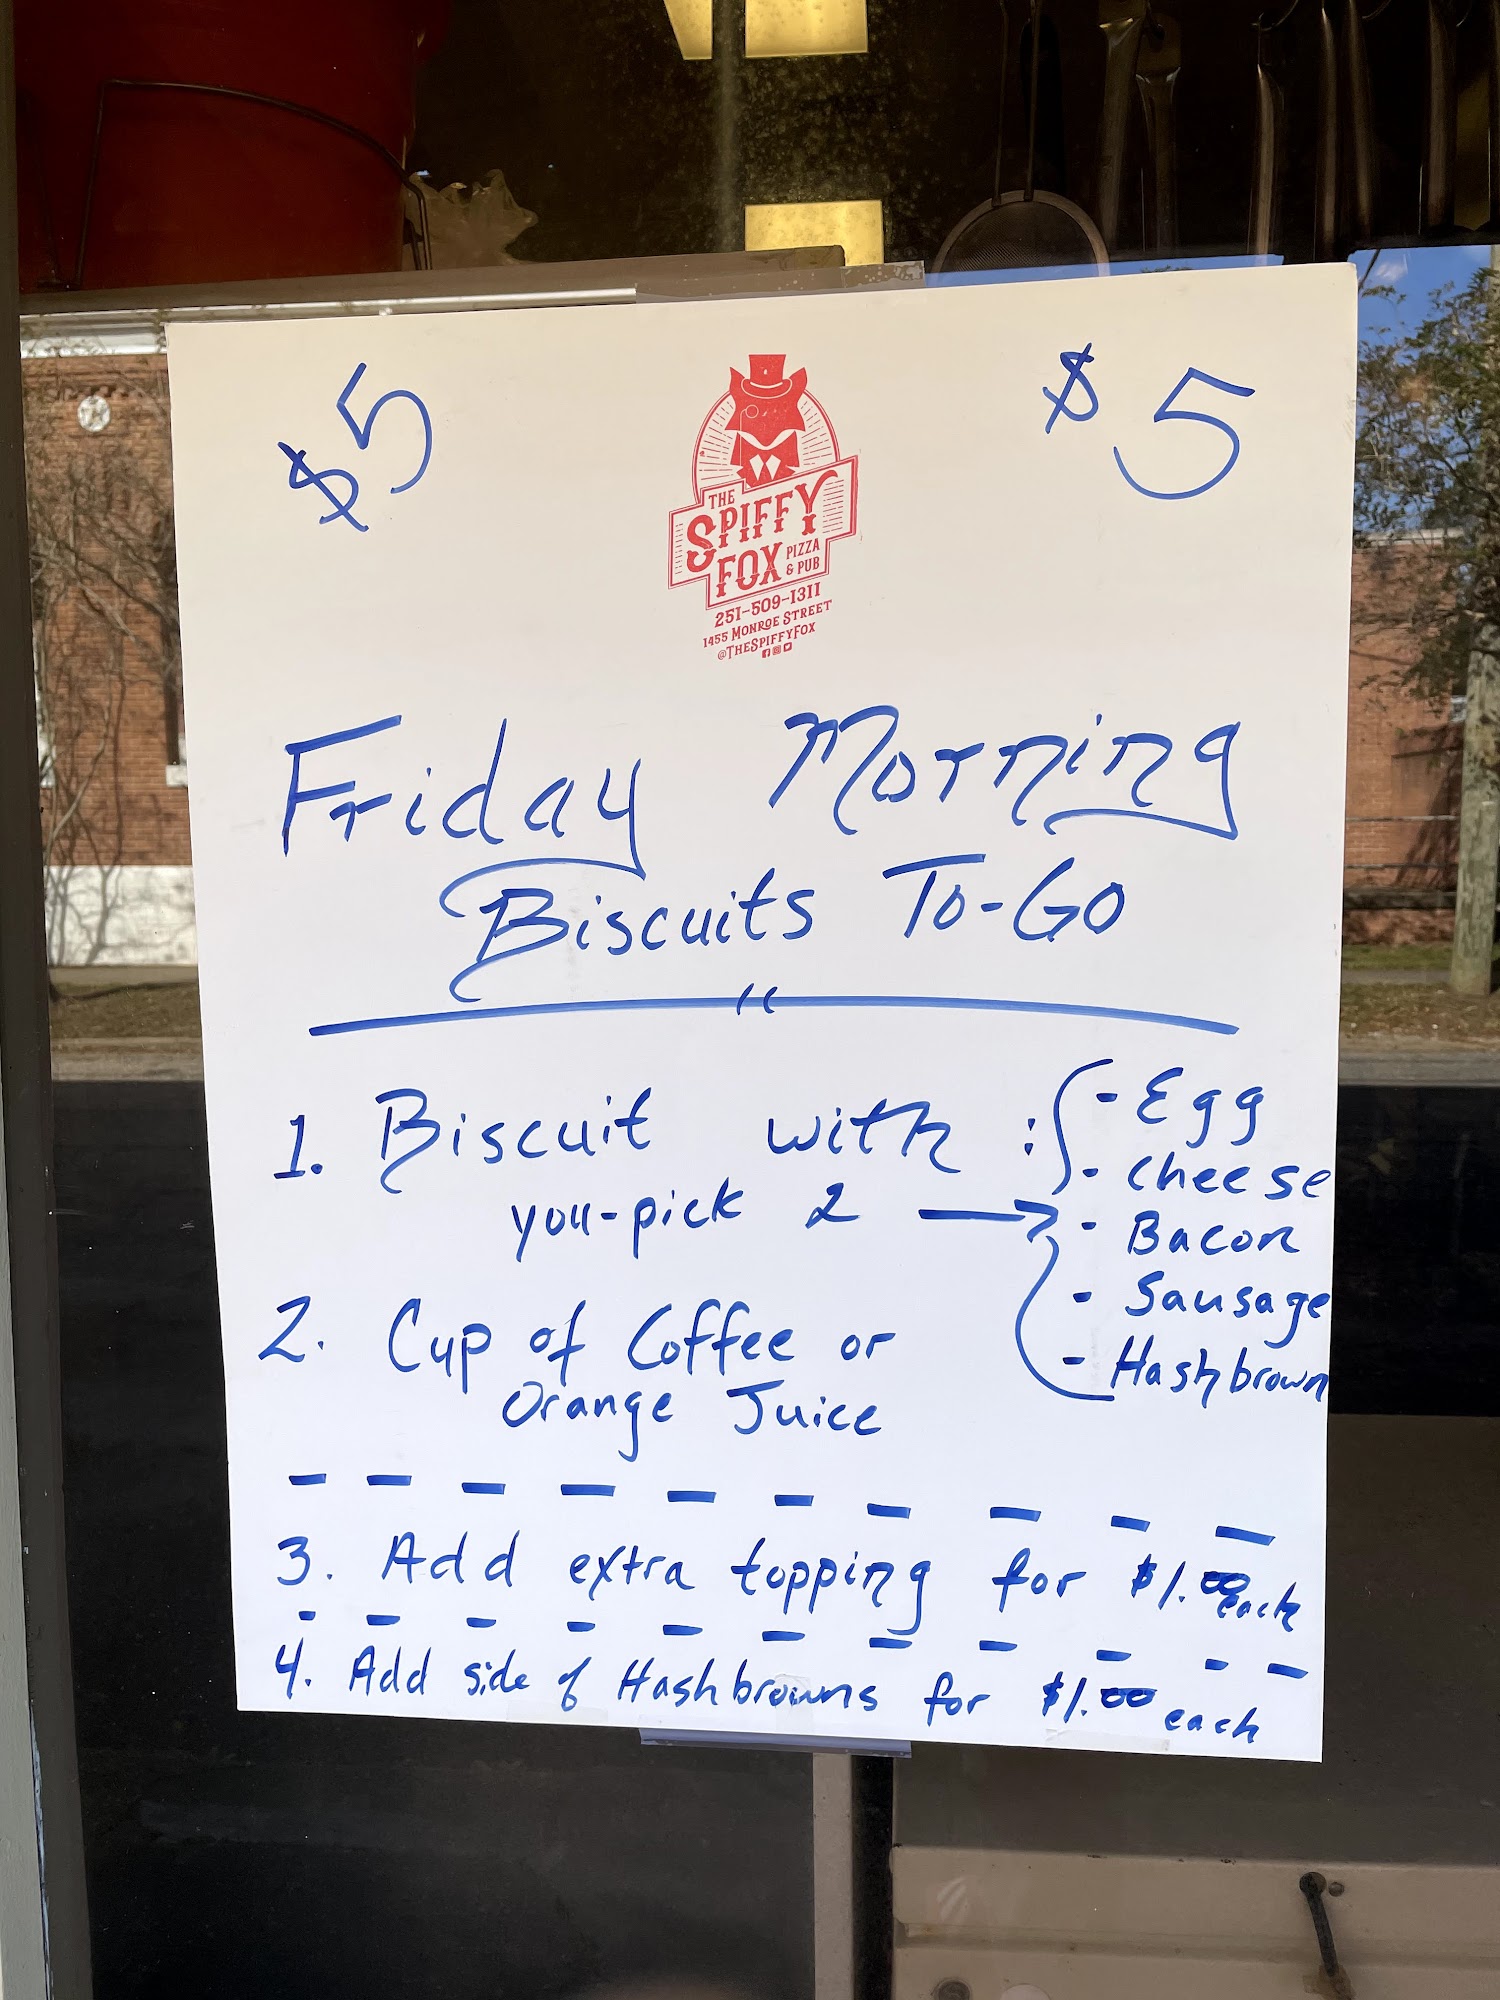 $5
$5
THE
SPIFFY
FOX PIZZA & PUB
251-509-1311
1455 MONROE STREET
@THESPIFFYFOX
Friday Morning
Biscuits To-Go
1. Biscuit with :
you-pick 2 →
- Egg
- cheese
- Bacon
- Sausage
- Hashbrown
2. Cup of Coffee or
Orange Juice
3. Add extra topping for $1.00 each
4. Add side of Hashbrowns for $1.00 each